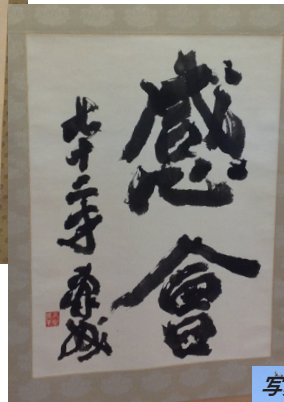 感會
七十二才
写